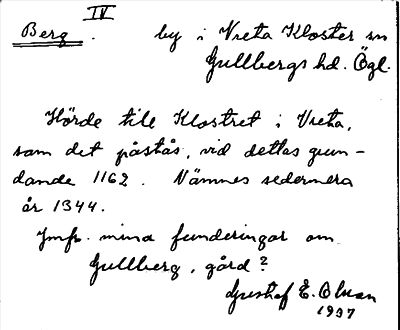 IV
Berg. by i Vreta Kloster sn
Gullbergs hd. Ögl.
Hörde till Klostret i Vreta,
som det påstås, vid dettas grun-
dande 1162. Nämnes sedermera
år 1344.
Jmfr. mina funderingar om
Gullberg, gård?
Gustaf E. Olson
1937